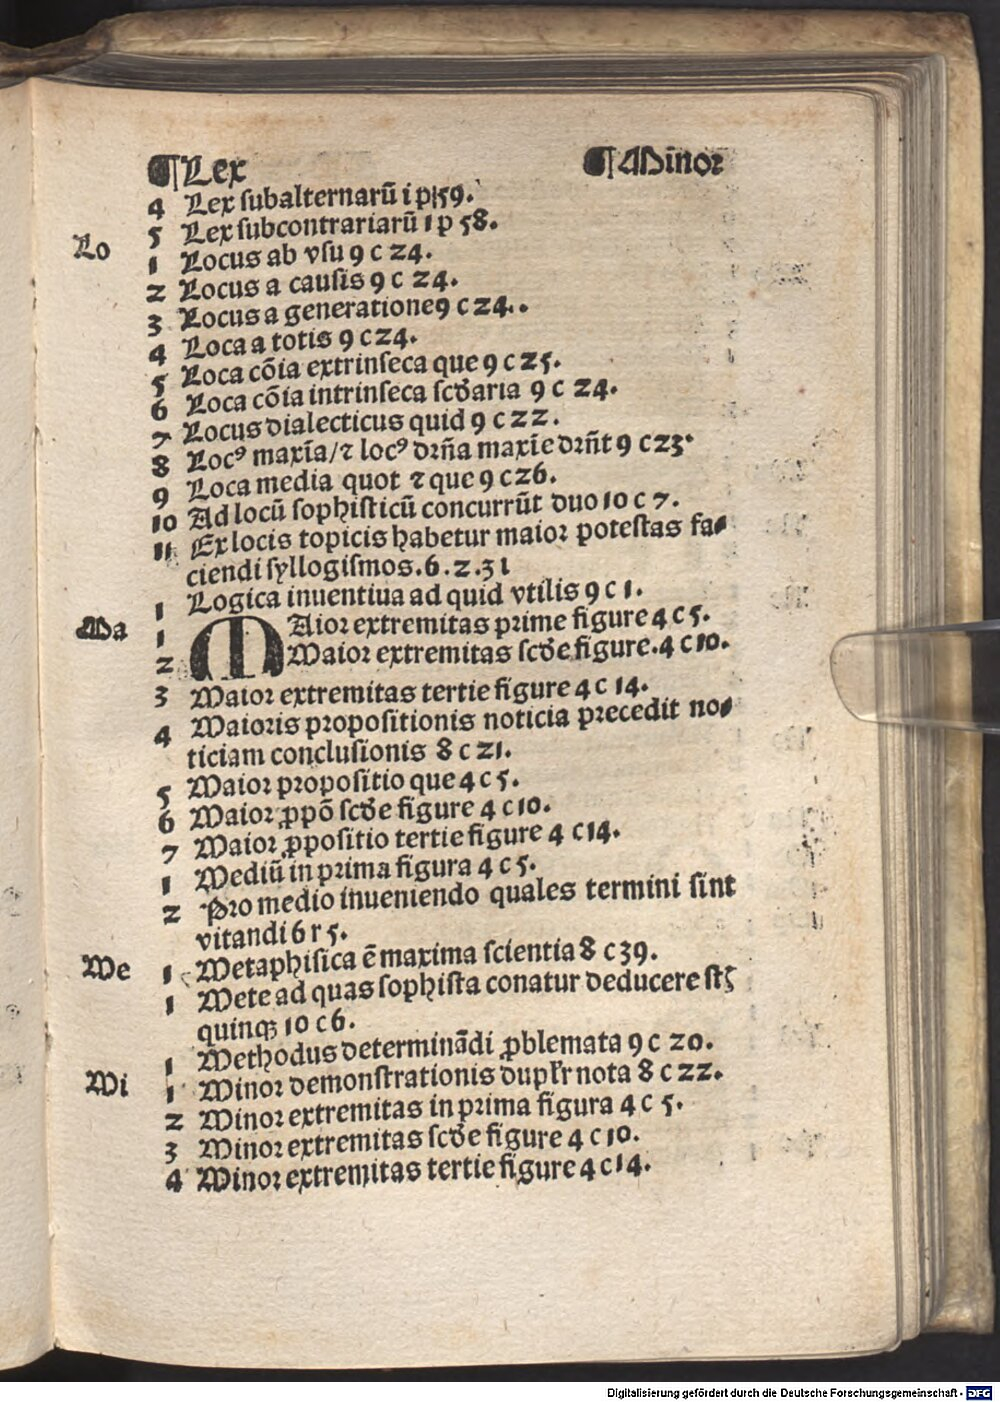 ¶Lex ¶Minor
4 Lex subalternarū i p 59.
5 Lex subcontrariarū 1 p 58.
Lo 1 Locus ab vsu 9 c 24.
2 Locus a causis 9 c 24.
3 Locus a generatione 9 c 24..
4 Loca a totis 9 c 24.
5 Loca cōia extrinseca que 9 c 25.
6 Loca cōia intrinseca scd̄aria 9 c 24.
7 Locus dialecticus quid 9 c 22.
8 Locꝰ maxīa/⁊ locꝰ dr̄ña maxīe dr̄ñt 9 c 23.
9 Loca media quot ⁊ que 9 c 26.
10 Ad locū sophisticū concurrūt duo 10 c 7.
11 Ex locis topicis habetur maior potestas fa⸗
ciendi syllogismos.6.2.31
1 Logica inuentiua ad quid vtilis 9 c 1.
Ma 1 MAior extremitas prime figure 4 c 5.
2 Maior extremitas scd̄e figure.4 c 10.
3 Maior extremitas tertie figure 4 c 14.
4 Maioris propositionis noticia precedit no⸗
ticiam conclusionis 8 c 21.
5 Maior propositio que 4 c 5.
6 Maior ꝓpō scd̄e figure 4 c 10.
7 Maior ꝓpositio tertie figure 4 c 14.
1 Mediū in prima figura 4 c 5.
2 Pro medio inueniendo quales termini sint
vitandi 6 r 5.
Me 1 Metaphisica ē maxima scientia 8 c 39.
1 Mete ad quas sophista conatur deducere st̄
quinqꝫ 10 c 6.
1 Methodus determinādi ꝓblemata 9 c 20.
Mi 1 Minor demonstrationis dupl̄r nota 8 c 22.
2 Minor extremitas in prima figura 4 c 5.
3 Minor extremitas scd̄e figure 4 c 10.
4 Minor extremitas tertie figure 4 c 14.
Digitalisierung gefördert durch die Deutsche Forschungsgemeinschaft - DFG